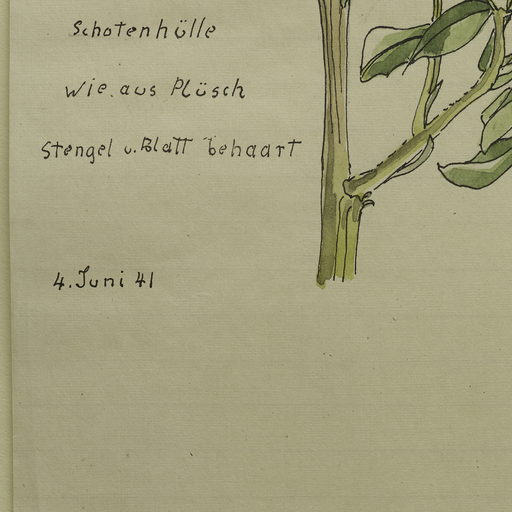 Schotenhülle
wie aus Plüsch
Stengel u. Blatt behaart
4. Juni 41